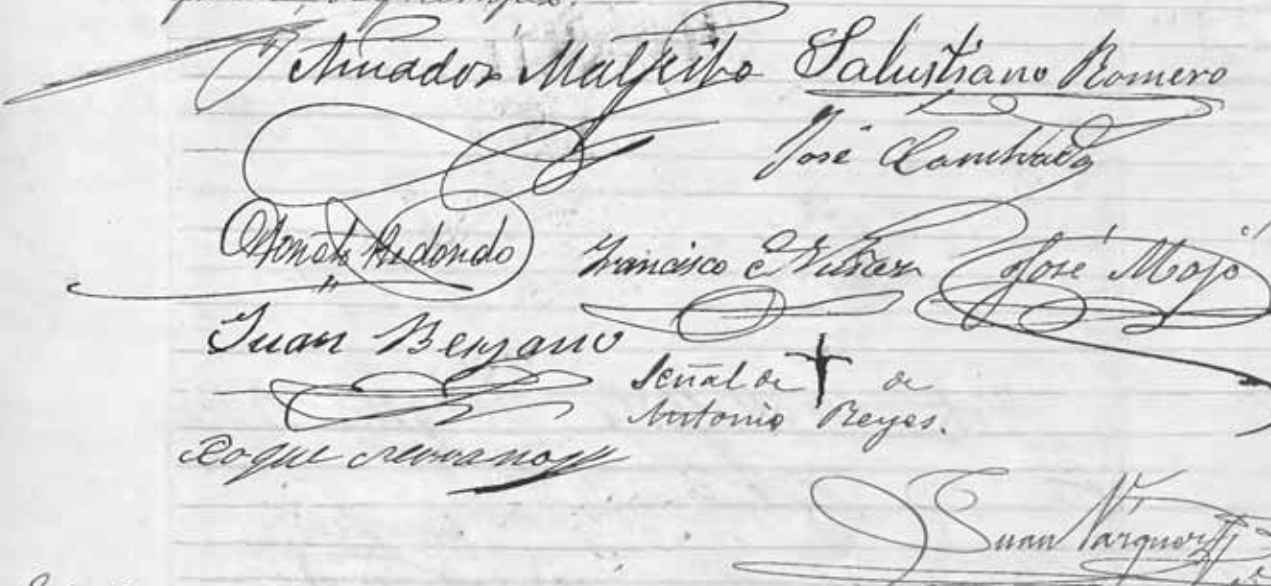 Amador Malfeito Salustiano Romero
José
Redondo Francisco Nuñez José Mojó
Juan Berjano
Señal de † de
Antonio Reyes.
Roque Serrano
Juan Vazquez